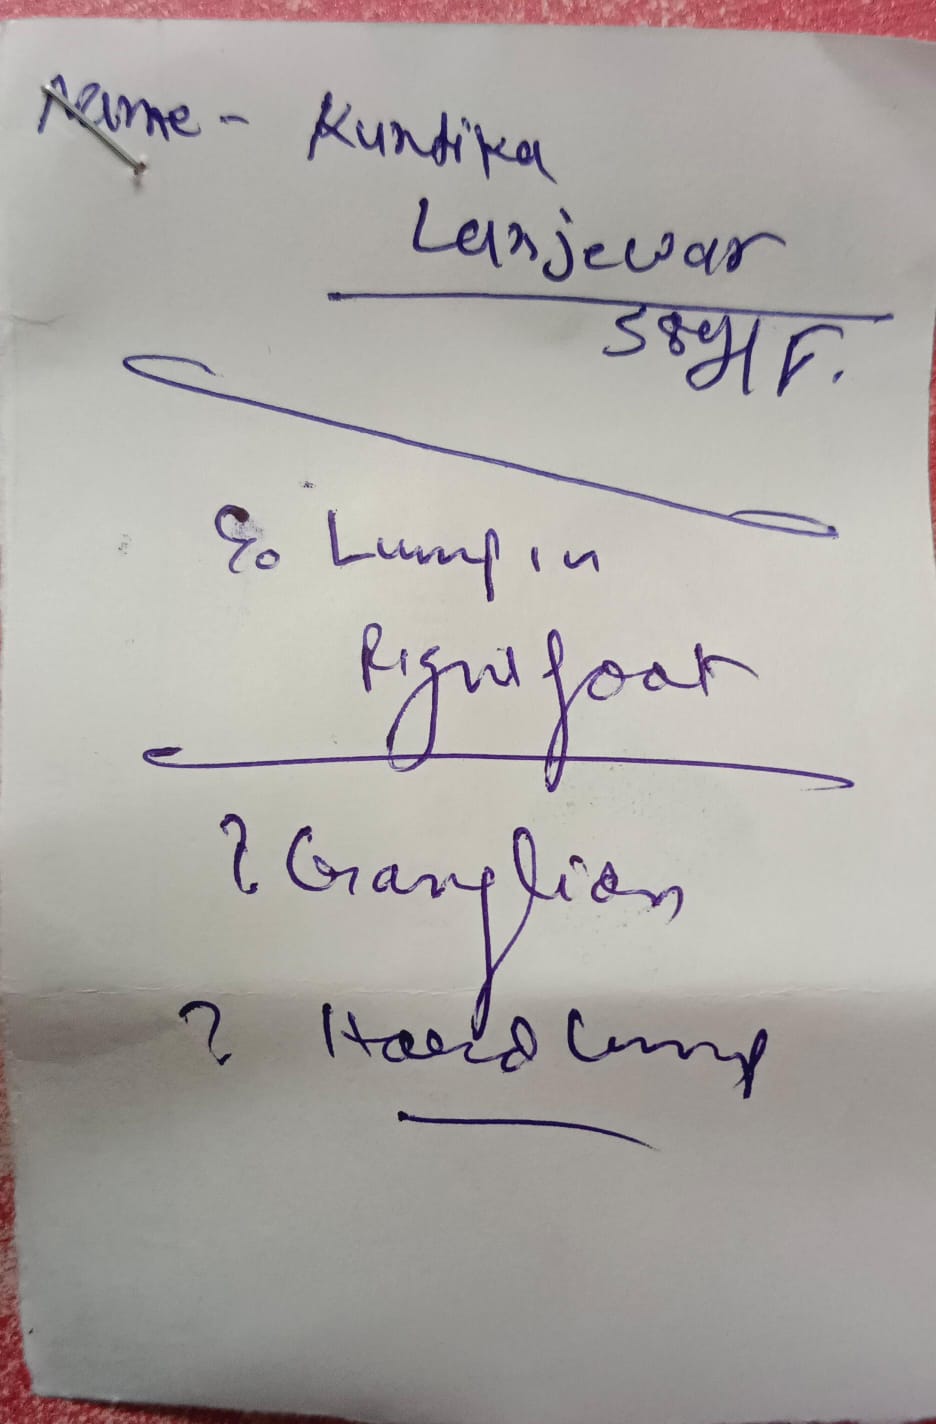 Name - Kundika
Lanjewar
38y/F.
c/o Lump in
Right foot
? Ganglion
? Hard lump